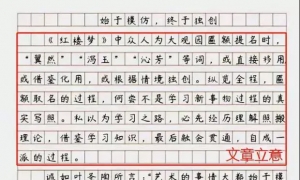 始于模仿，终于独创
《红楼梦》中众人为大观园匾额提名时，
“翼然”“泻玉”“沁芳”等词，或直接移用
或借鉴化用，或根据情境独创。纵览全程，匾
额取名的过程，何尝不是学习新事物过程的真
实写照。私以为学习之路，必先经历理解照搬
理论，借鉴学习知识，最后融会贯通，自成一
派的过程。
文章立意